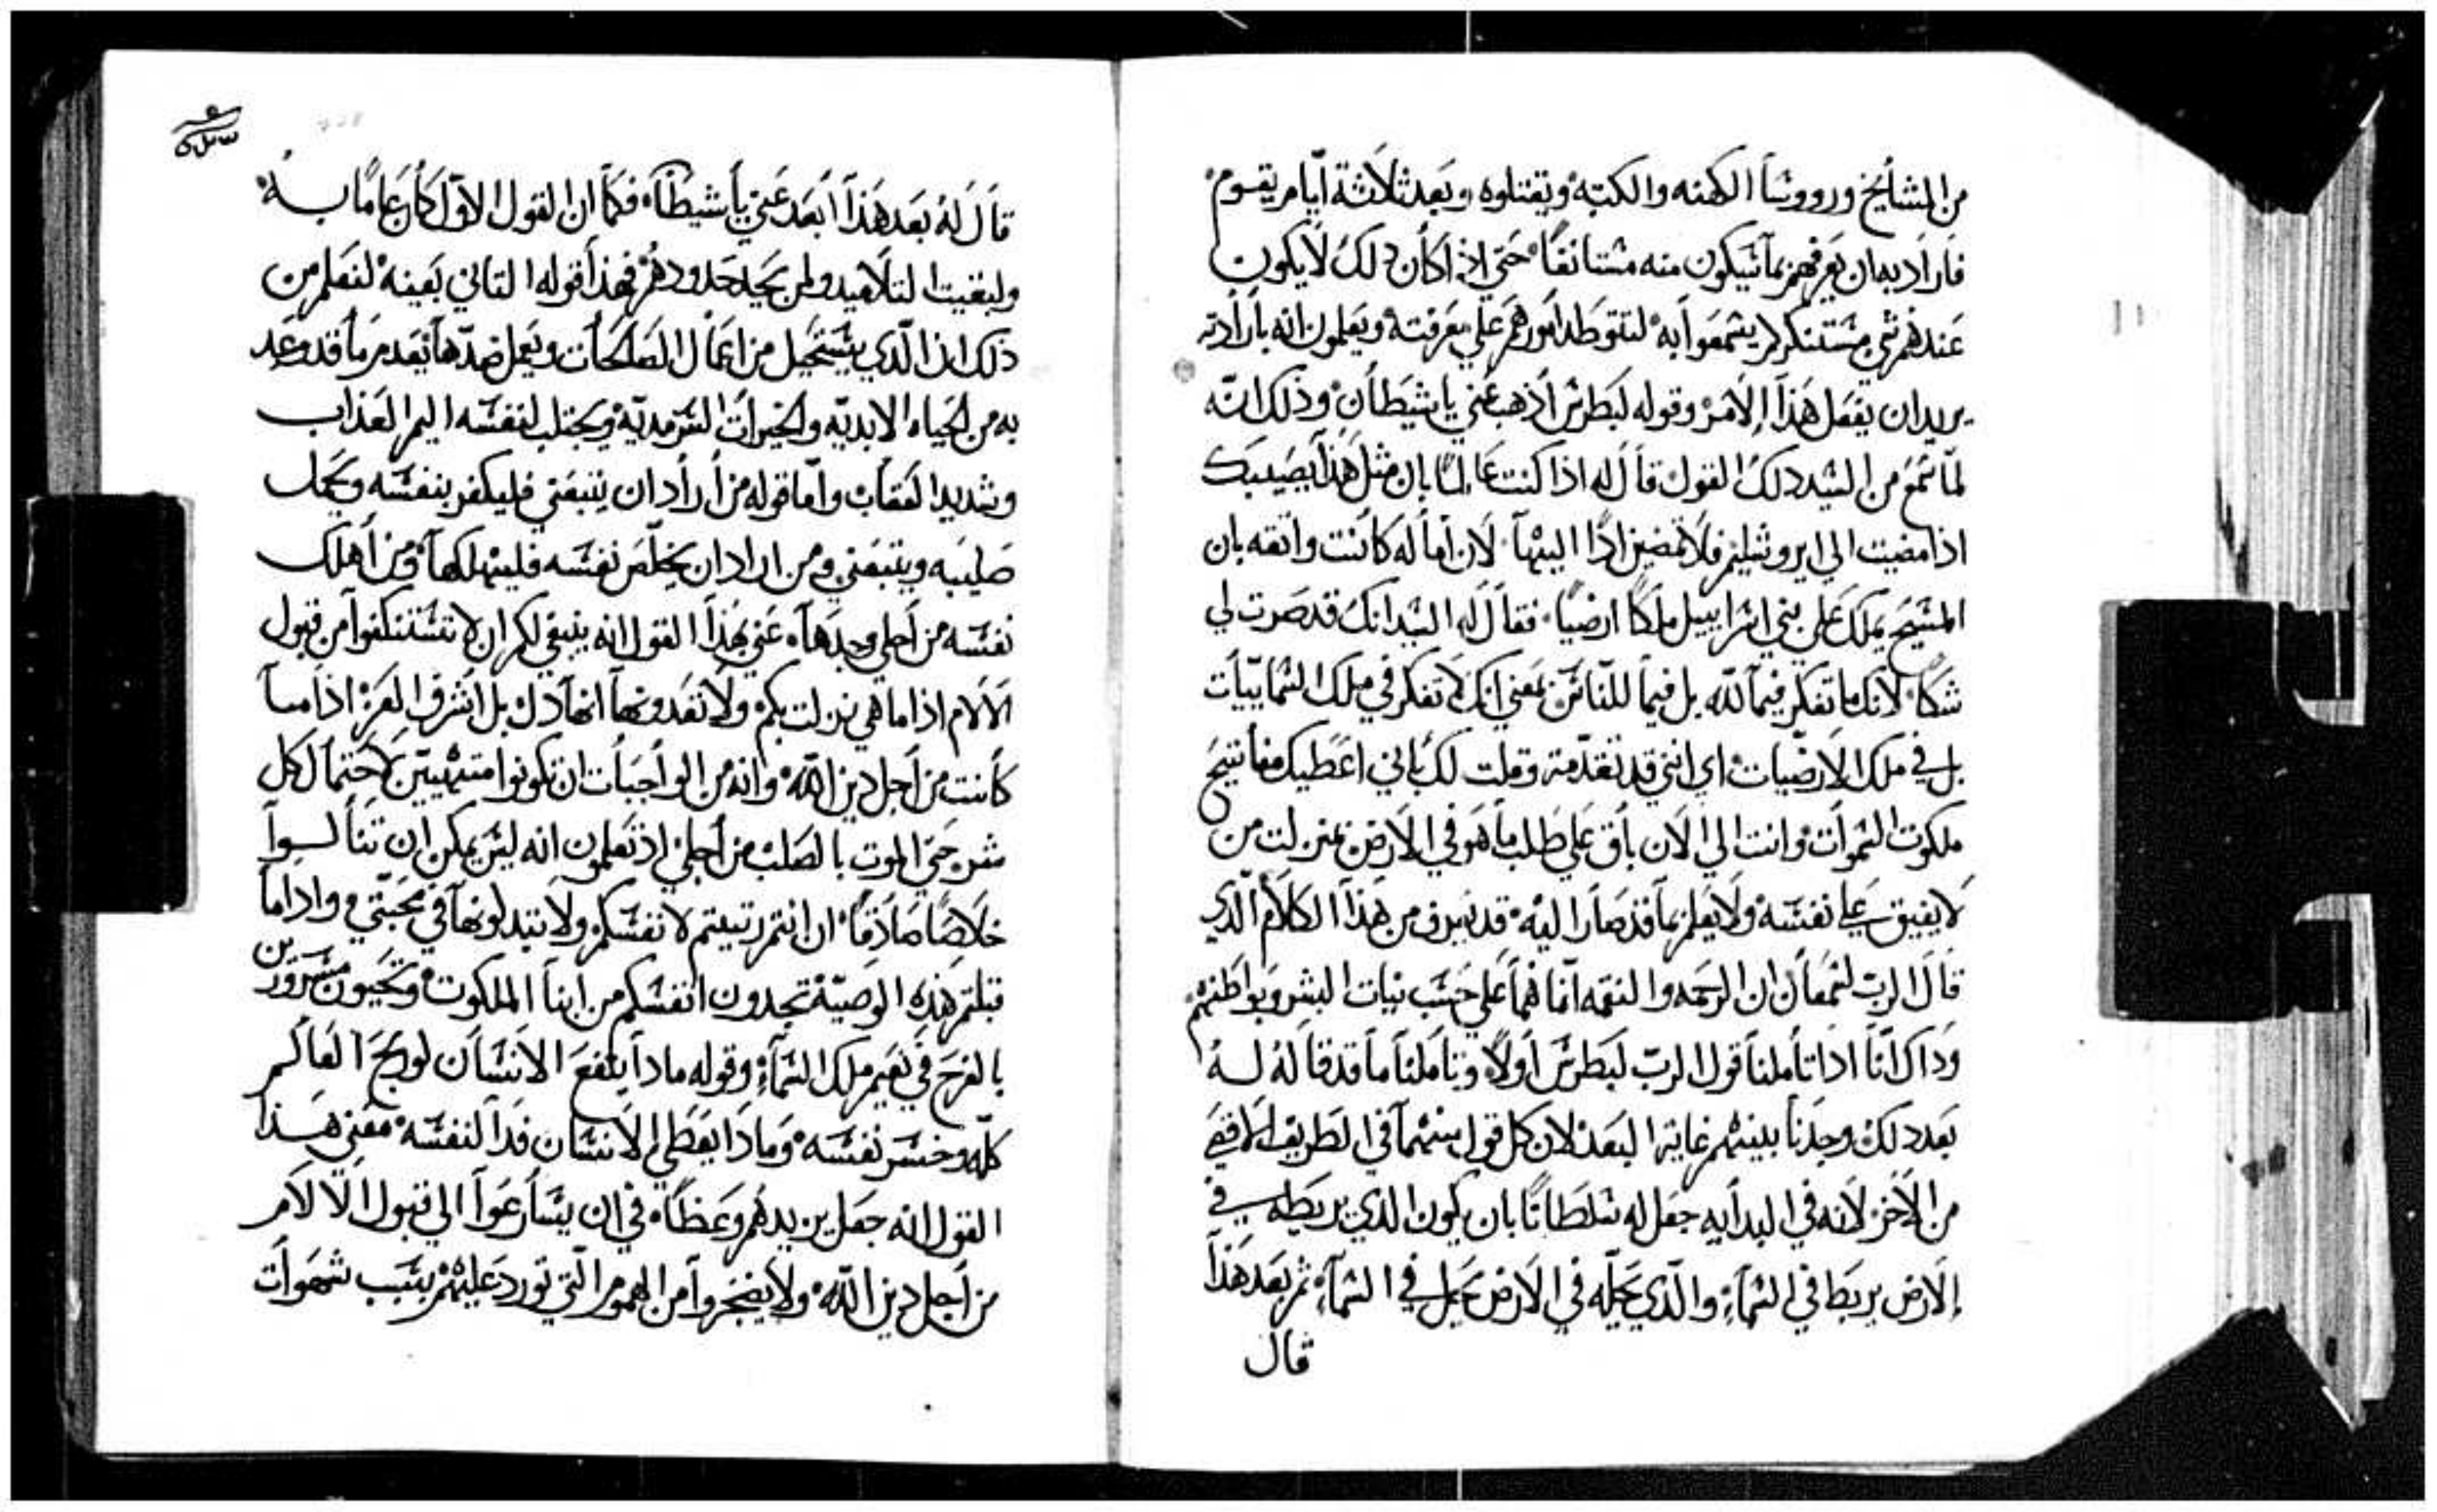 من المشايخ وروؤسا الكهنه والكتبه ويقتلوه وبعد ثلاثة ايام يقوم
فاراد بهذا ان يعرفهم بما سيكون منه مستانفا حتي اذا كان دلك لا يكون
عندهم شي مستنكر لم يسمعوا به لتتوطد امورهم علي معرفته ويعلمون انه بارادته
يريد ان يفعل هذا الامر وقوله لبطرس اذهب عني يا شيطان وذلك انه
لما سمع من السيد دلك القول قال له اذا كنت عالما بان مثل هذا يصيبك
اذا مضيت الي ايروشليم فلا تمضين اذا اليها لان اماله كانت واثقه بان
المسيح يملك علي بني اسراييل ملكا ارضيا فقال له السيد انك قد صرت لي
شكا لانك ما تفكر فيما لله بل فيما للناس يعني انك لا تفكر في ملك السماييات
بل في ملك الارضيات اي انني قد تقدمت وقلت لك باني اعطيك مفاتيح
ملكوت السموات وانت الي الان باق علي طلب ما هو في الارض بمنزلت من
لا يفيق علي نفسه ولا يعلم بما قد صار اليه قد نعرف من هذا الكلام الذي
قال الرب لسمعان ان الرحمه والنقمه انما هما علي حسب نيات البشر وبواطنهم
وداك اننا ادا تاملنا قول الرب لبطرس اولا وتاملنا ما قد قاله له
بعد دلك وجدنا بينهم غاية البعد لان كل قول منهما في الطريق الاقصي
من الاخر لانه في البدايه جعل له سلطانا بان يكون الذي يربطه في
الارض يربط في السماء والذي يحله في الارض يحل في السماء ثم بعد هذا
قال
قال له بعد هذا ابعد عني يا شيطان فكما ان القول الاول كان عاما به
ولبقيت التلاميد ولمن يحيد حدودهم فهذا قوله التاني بعينه لنعلم من
ذلك ان الذي يستحيل من اعمال الصالحات ويعمل ضدها يعدم ما قد وعد
به من الحياه الابديه والخيرات السرمديه ويجتلب لنفسه اليم العذاب
وشديد العقاب واما قوله من اراد ان يتبعني فليكفر بنفسه ويحمل
صليبه ويتبعني ومن اراد ان يخلص نفسه فليهلكها ومن اهلك
نفسه من اجلي وجدها عني بهذا القول انه ينبغي لكم ان لا تستنكفوا من قبول
الالام اذا ما هي نزلت بكم ولا تعدونها انها دل بل اشرف العز اذا ما
كانت من اجل دين الله وانه من الواجبات ان تكونوا متهييين لاحتمال كل
شي حتي الموت بالصلب من اجلي اذ تعلمون انه ليس يمكن ان تنالوا
خلاصا صادقا ان انتم رتيتم لانفسكم ولا تبدلونها في محبتي واداما
قبلتم هذه الوصية تجدون انفسكم من ابنا الملكوت وتحيون مسرورين
بالفرح في نعيم ملك السماء وقوله مادا ينفع الانسان لو ربح العالم
كله وخسر نفسه ومادا يعطي الانسان فدا لنفسه معني هذا
القول انه جعل بين يديهم وعظا في ان يسارعوا الي قبول الالام
من اجل دين الله ولا يضجروا من الهموم التي تورد عليهم بسبب شهوات